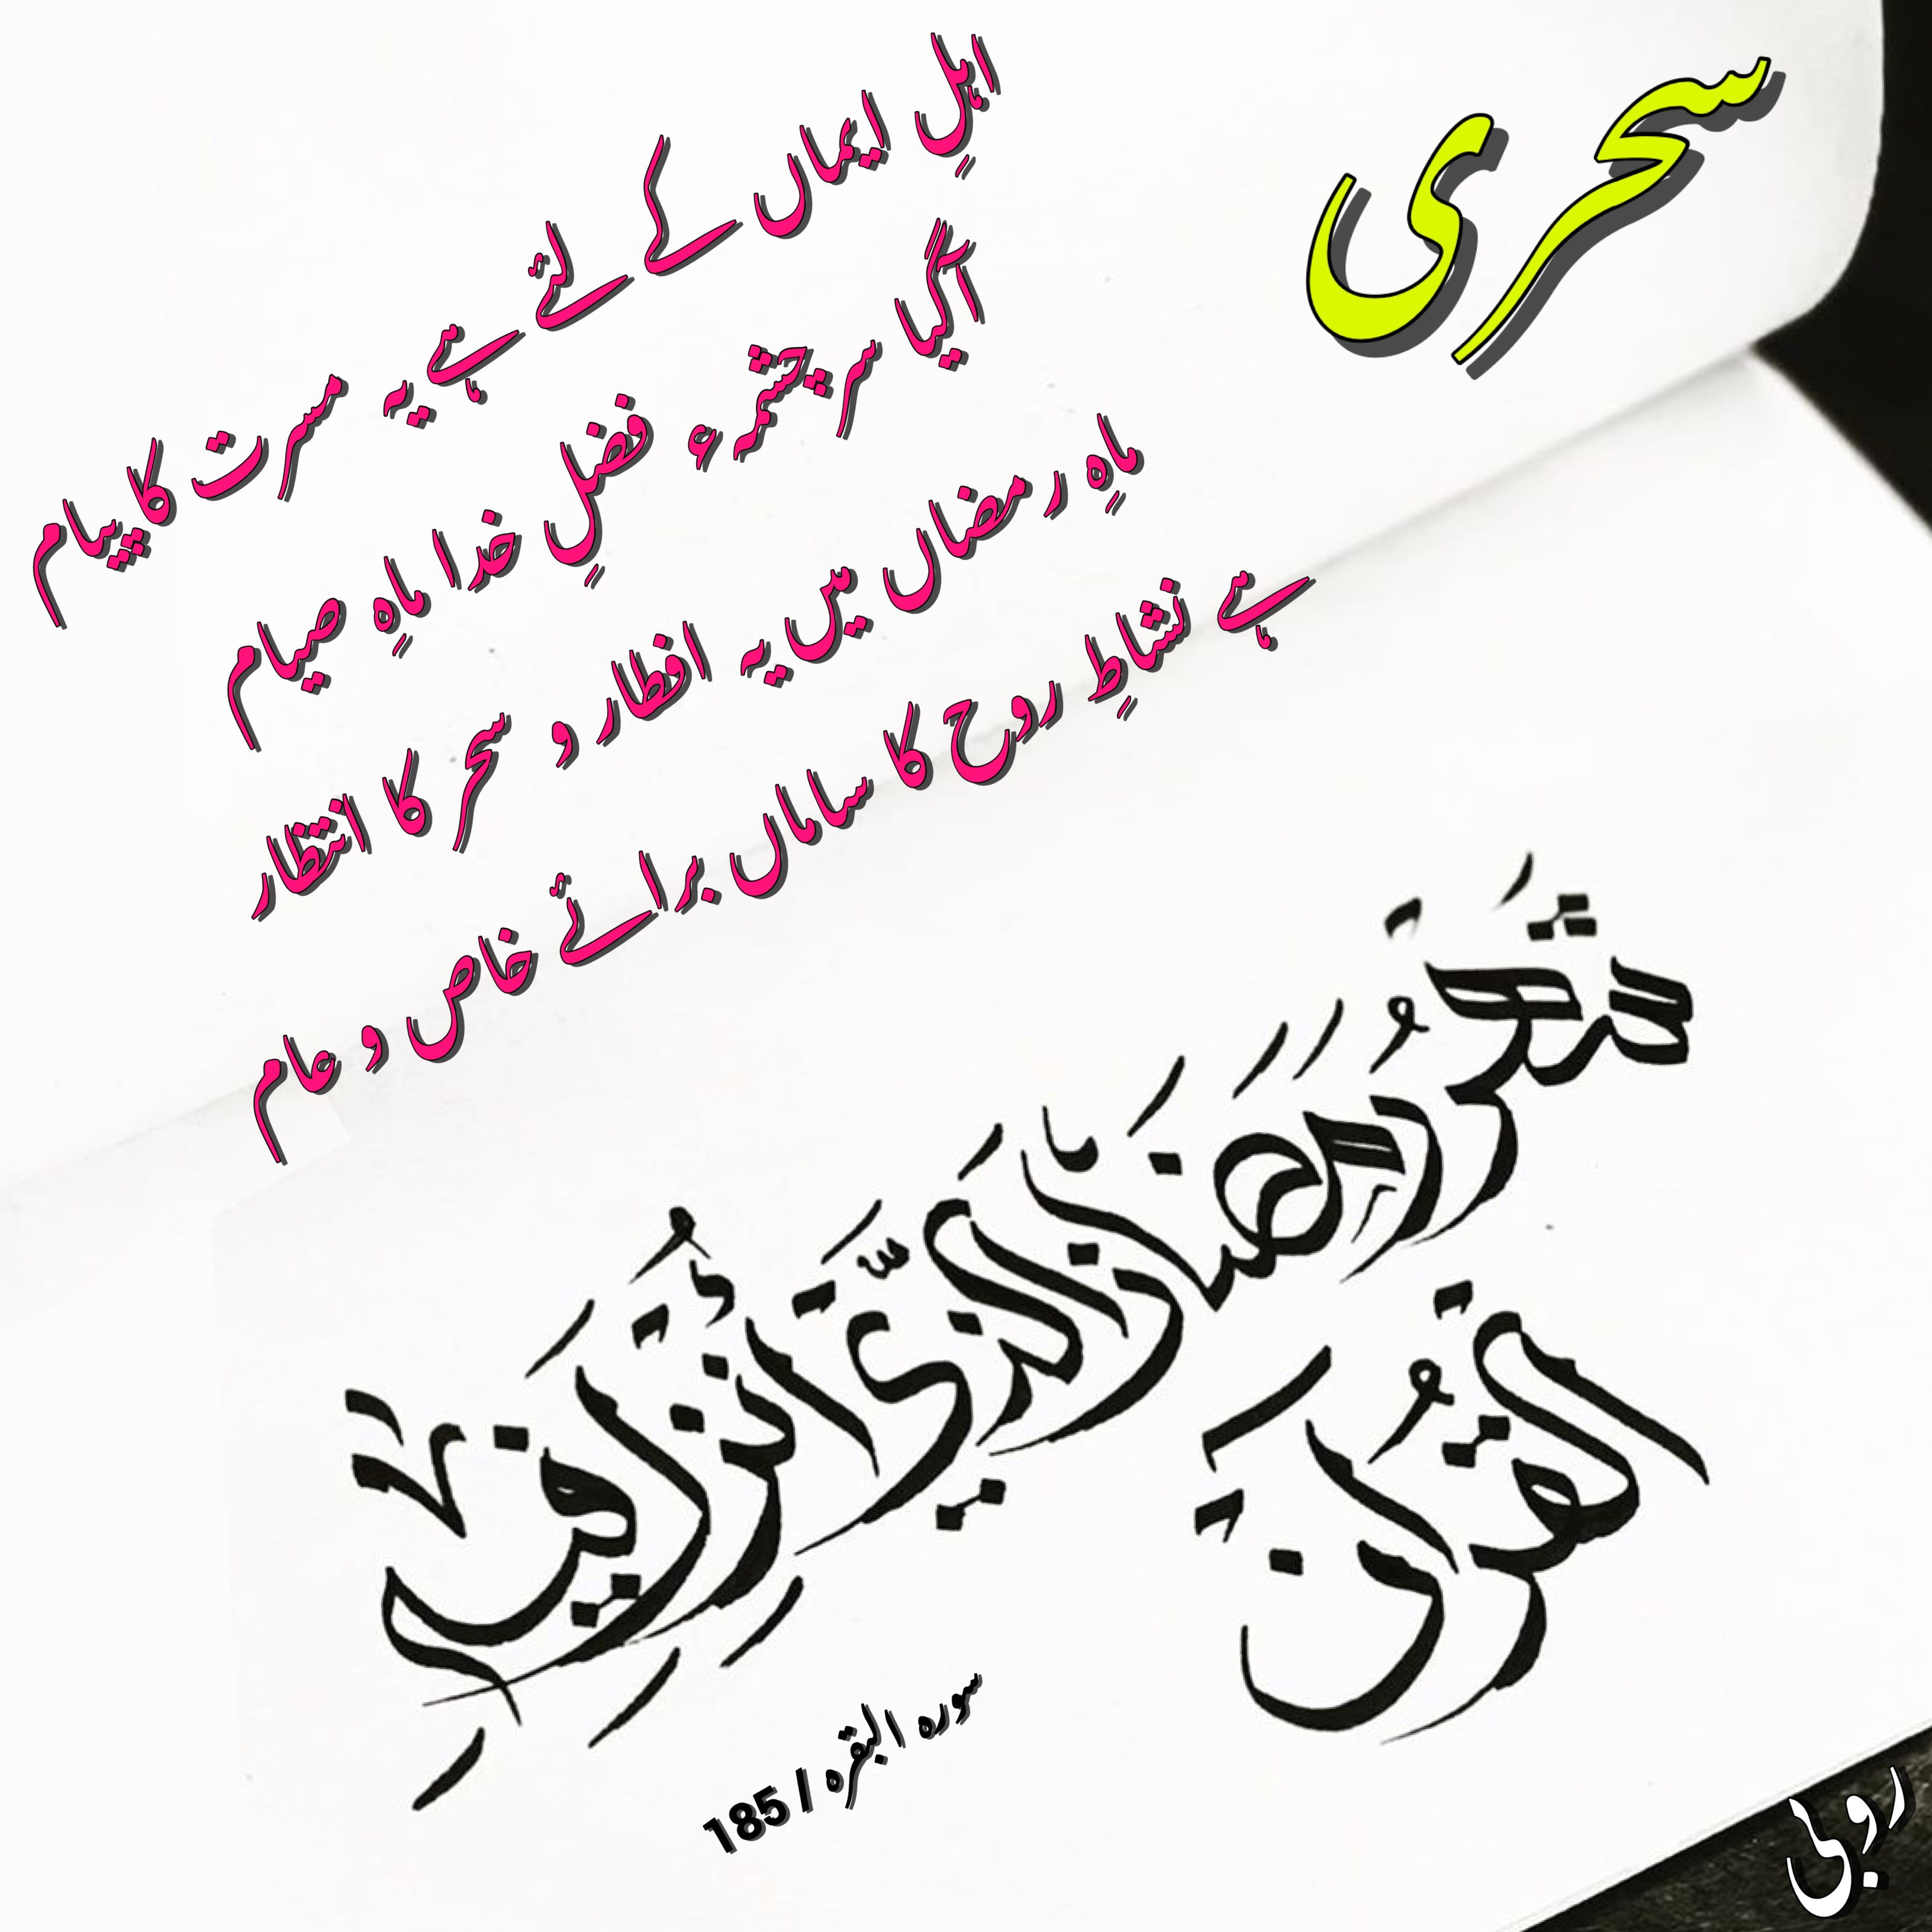 سحری
اہلِ ایماں کے لئے ہے یہ مسرت کا پیام
آگیا سر چشمہء فضلِ خدا ماہِ صیام
ماہِ رمضاں میں یہ افطار و سحر کا انتظار
ہے نشاطِ روح کا ساماں برائے خاص و عام
شَهْرُ رَمَضَانَ الَّذِي أُنْزِلَ فِيهِ
الْقُرْآنُ
سورہ البقرہ / 185
روبی